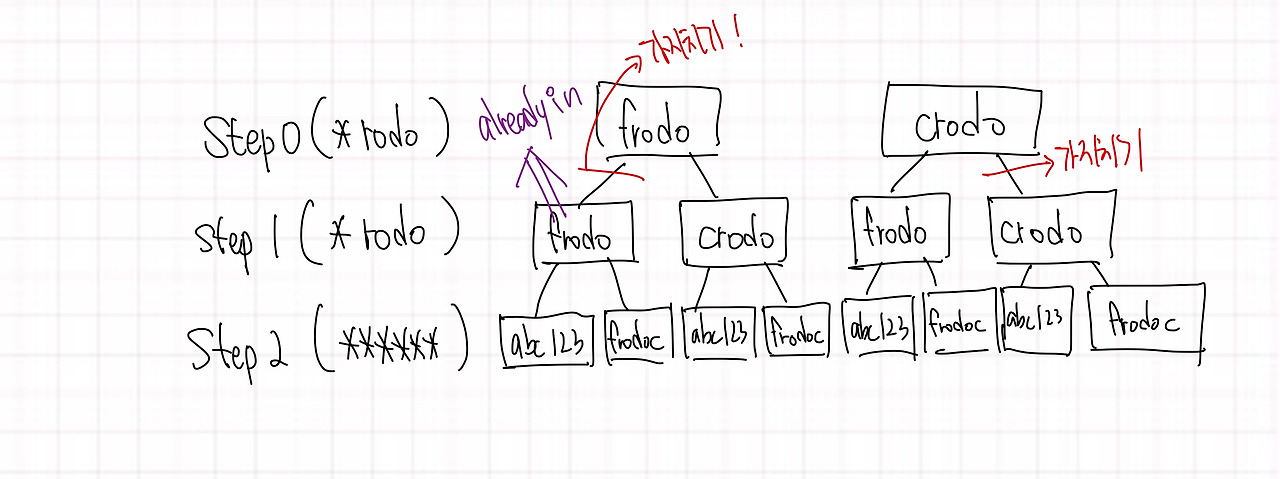 가지치기!
Step 0 (*rodo)
already in
frodo
crodo
가지치기
Step 1 (*rodo)
frodo
crodo
frodo
crodo
Step 2 (******)
abc123
frodoc
abc123
frodoc
abc123
frodoc
abc123
frodoc